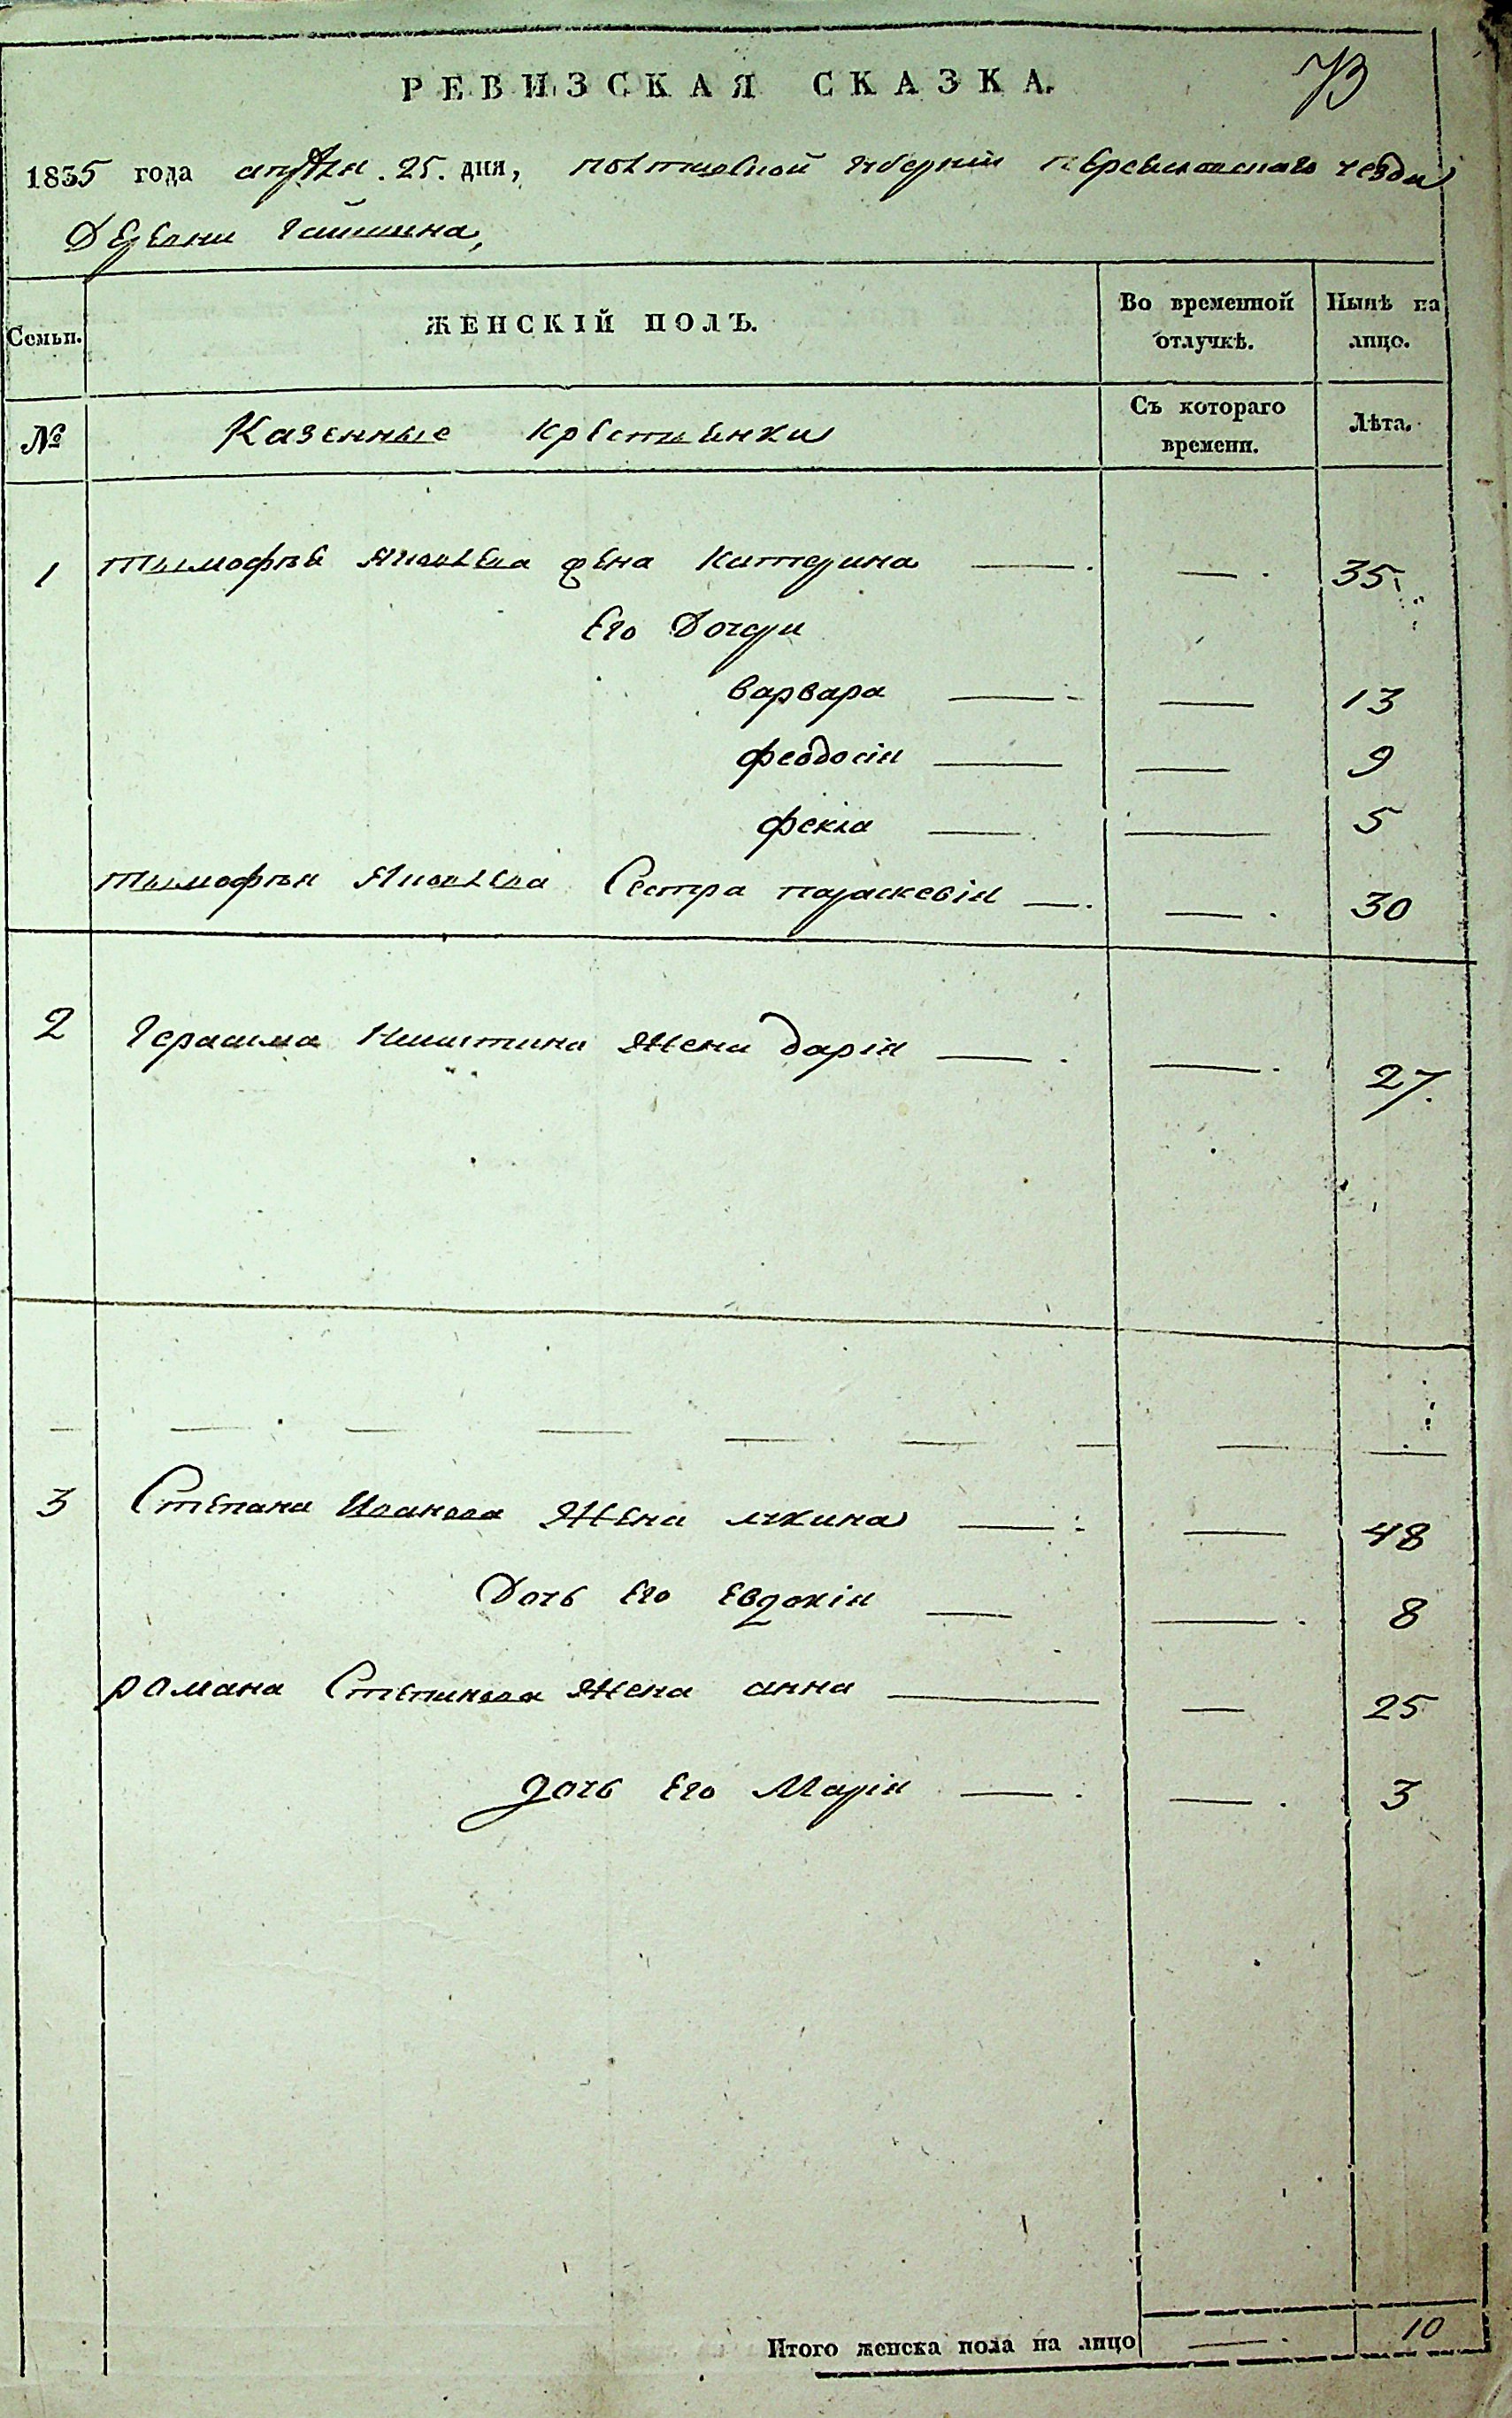 РЕВИЗСКАЯ СКАЗКА.
73
1835 года апреля 25. дня, полтавской губерніи переяславскаго уезда
Деревни Гайшина,
Семьи.
ЖЕНСКІЙ ПОЛЪ.
Во временной отлучкѣ.
Нынѣ на лицо.
№
Казенные крестьянки
Съ котораго времени.
Лѣта.
1 тымофѣя Яковлева жена Катерина — — 35
Его Дочери
варвара — — 13
феодосія — — 9
фекла — — 5
тымофѣя Яковлева Сестра параскевія — — 30
2 Герасима Никитина жена дарія — — 27.
3 Степана Иванова жена — — 48
Дочь Его Евдокія — — 8
романа Степанова жена анна — — 25
дочь Его Марія — — 3
Итого женска пола на лицо — 10